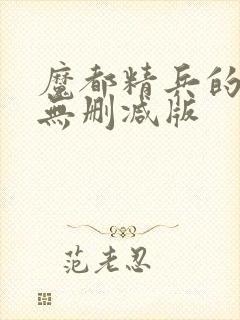 魔都精兵的
無删减版
范老忍